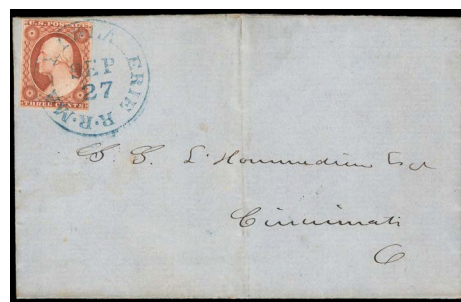 U.S. POSTAGE
THREE CENTS
ERIE R·R·
SEP
27
S. S. L'Hommedieu Esqr
Cincinnati
O